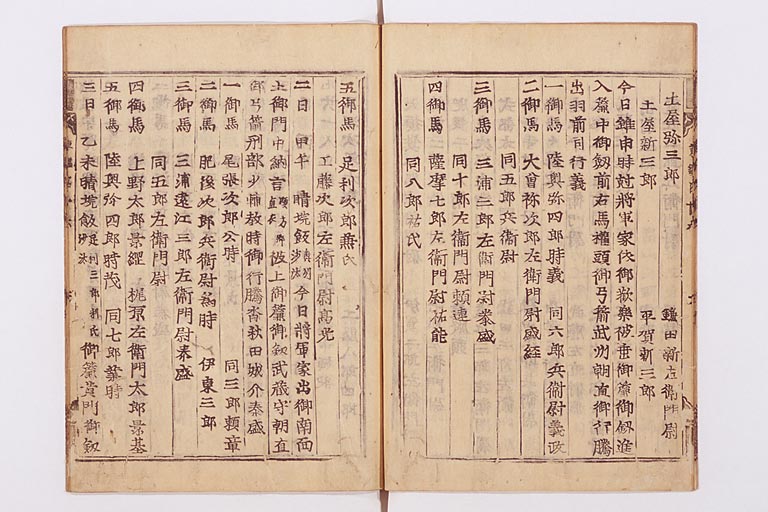 土屋弥三郎 鎌田新左衛門尉
土屋新三郎 平賀新三郎
今日雖申時尅將軍家依御歡樂被垂御簾御釼進
入簾中御釼前右馬權頭御弓箭武州朝直御行騰
出羽前司行義
一御馬 陸奥弥四郎時茂 同六郎兵衛尉義政
二御馬 大曾祢次郎左衛門尉盛経
同五郎兵衛尉
三御馬 三浦三郎左衛門尉泰盛
同十郎左衛門尉頼連
四御馬 薩摩七郎左衛門尉祐能
同八郎祐氏
五御馬 足利次郎兼氏
工藤次郎左衛門尉高光
二日 甲午 晴埦飯 今日將軍家出御南面
土御門中納言 被上御簾御釼武蔵守朝直
御弓箭刑部少輔教時御行騰沓秋田城介泰盛
一御馬 尾張次郎公時 同三郎頼章
二御馬 肥後次郎兵衛尉為時 伊東三郎
三御馬 三浦遠江三郎左衛門尉泰盛
同五郎左衛門尉
四御馬 上野太郎景經 梶原左衛門太郎景基
五御馬 陸奥弥四郎時茂 同七郎業時
三日 乙未晴埦飯 足利三郎利氏 御簾黄門御釼